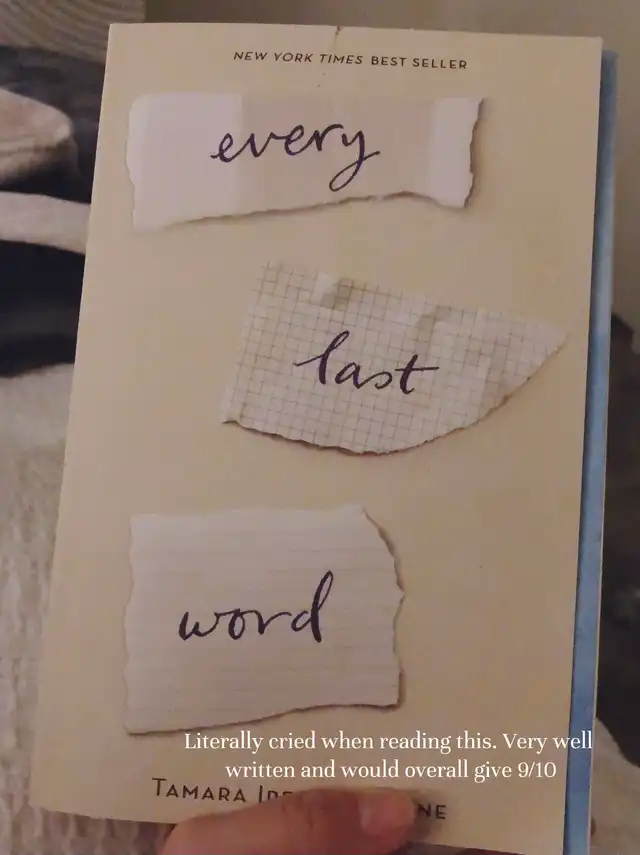 NEW YORK TIMES BEST SELLER
every
last
word
Literally cried when reading this. Very well
written and would overall give 9/10
TAMARA